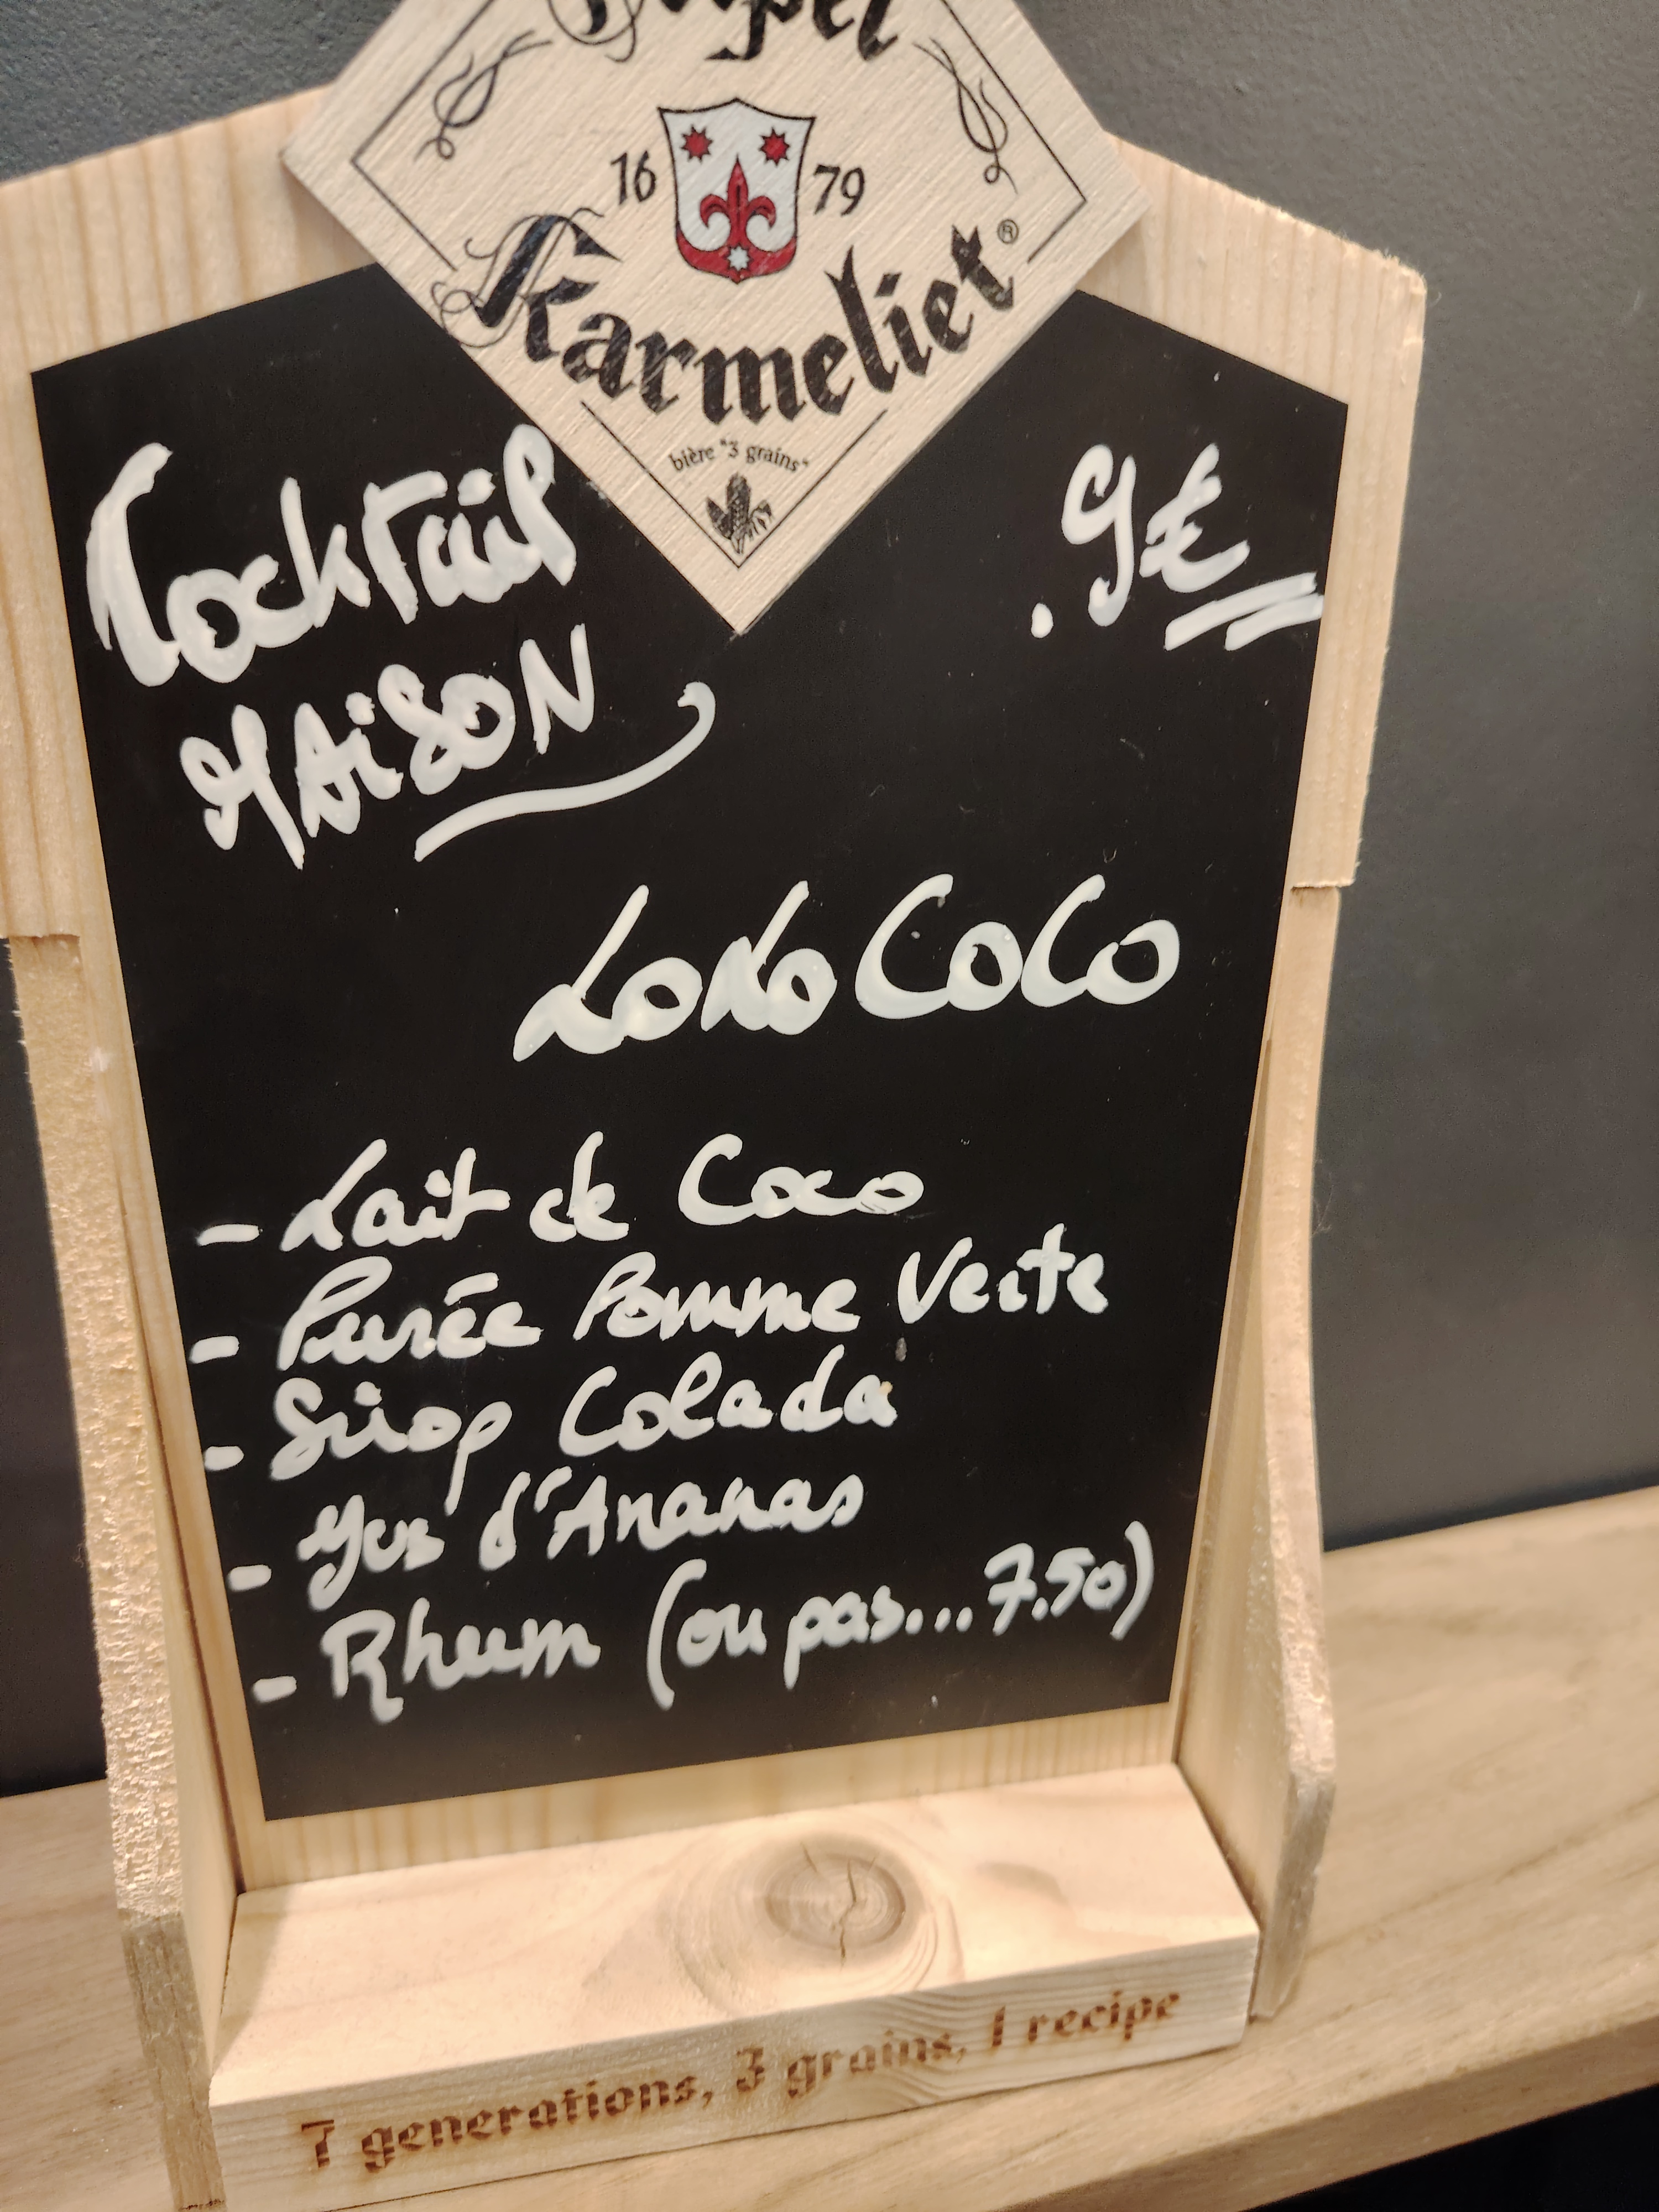 Tripel
16 79
Karmeliet®
bière "3 grains"
Cocktail
MAISON
. 9€
LOKO COCO
- Lait de Coco
- Purée Pomme Verte
- Sirop Colada
- Jus d'Ananas
- Rhum (ou pas... 7.50)
7 generations, 3 grains, 1 recipe